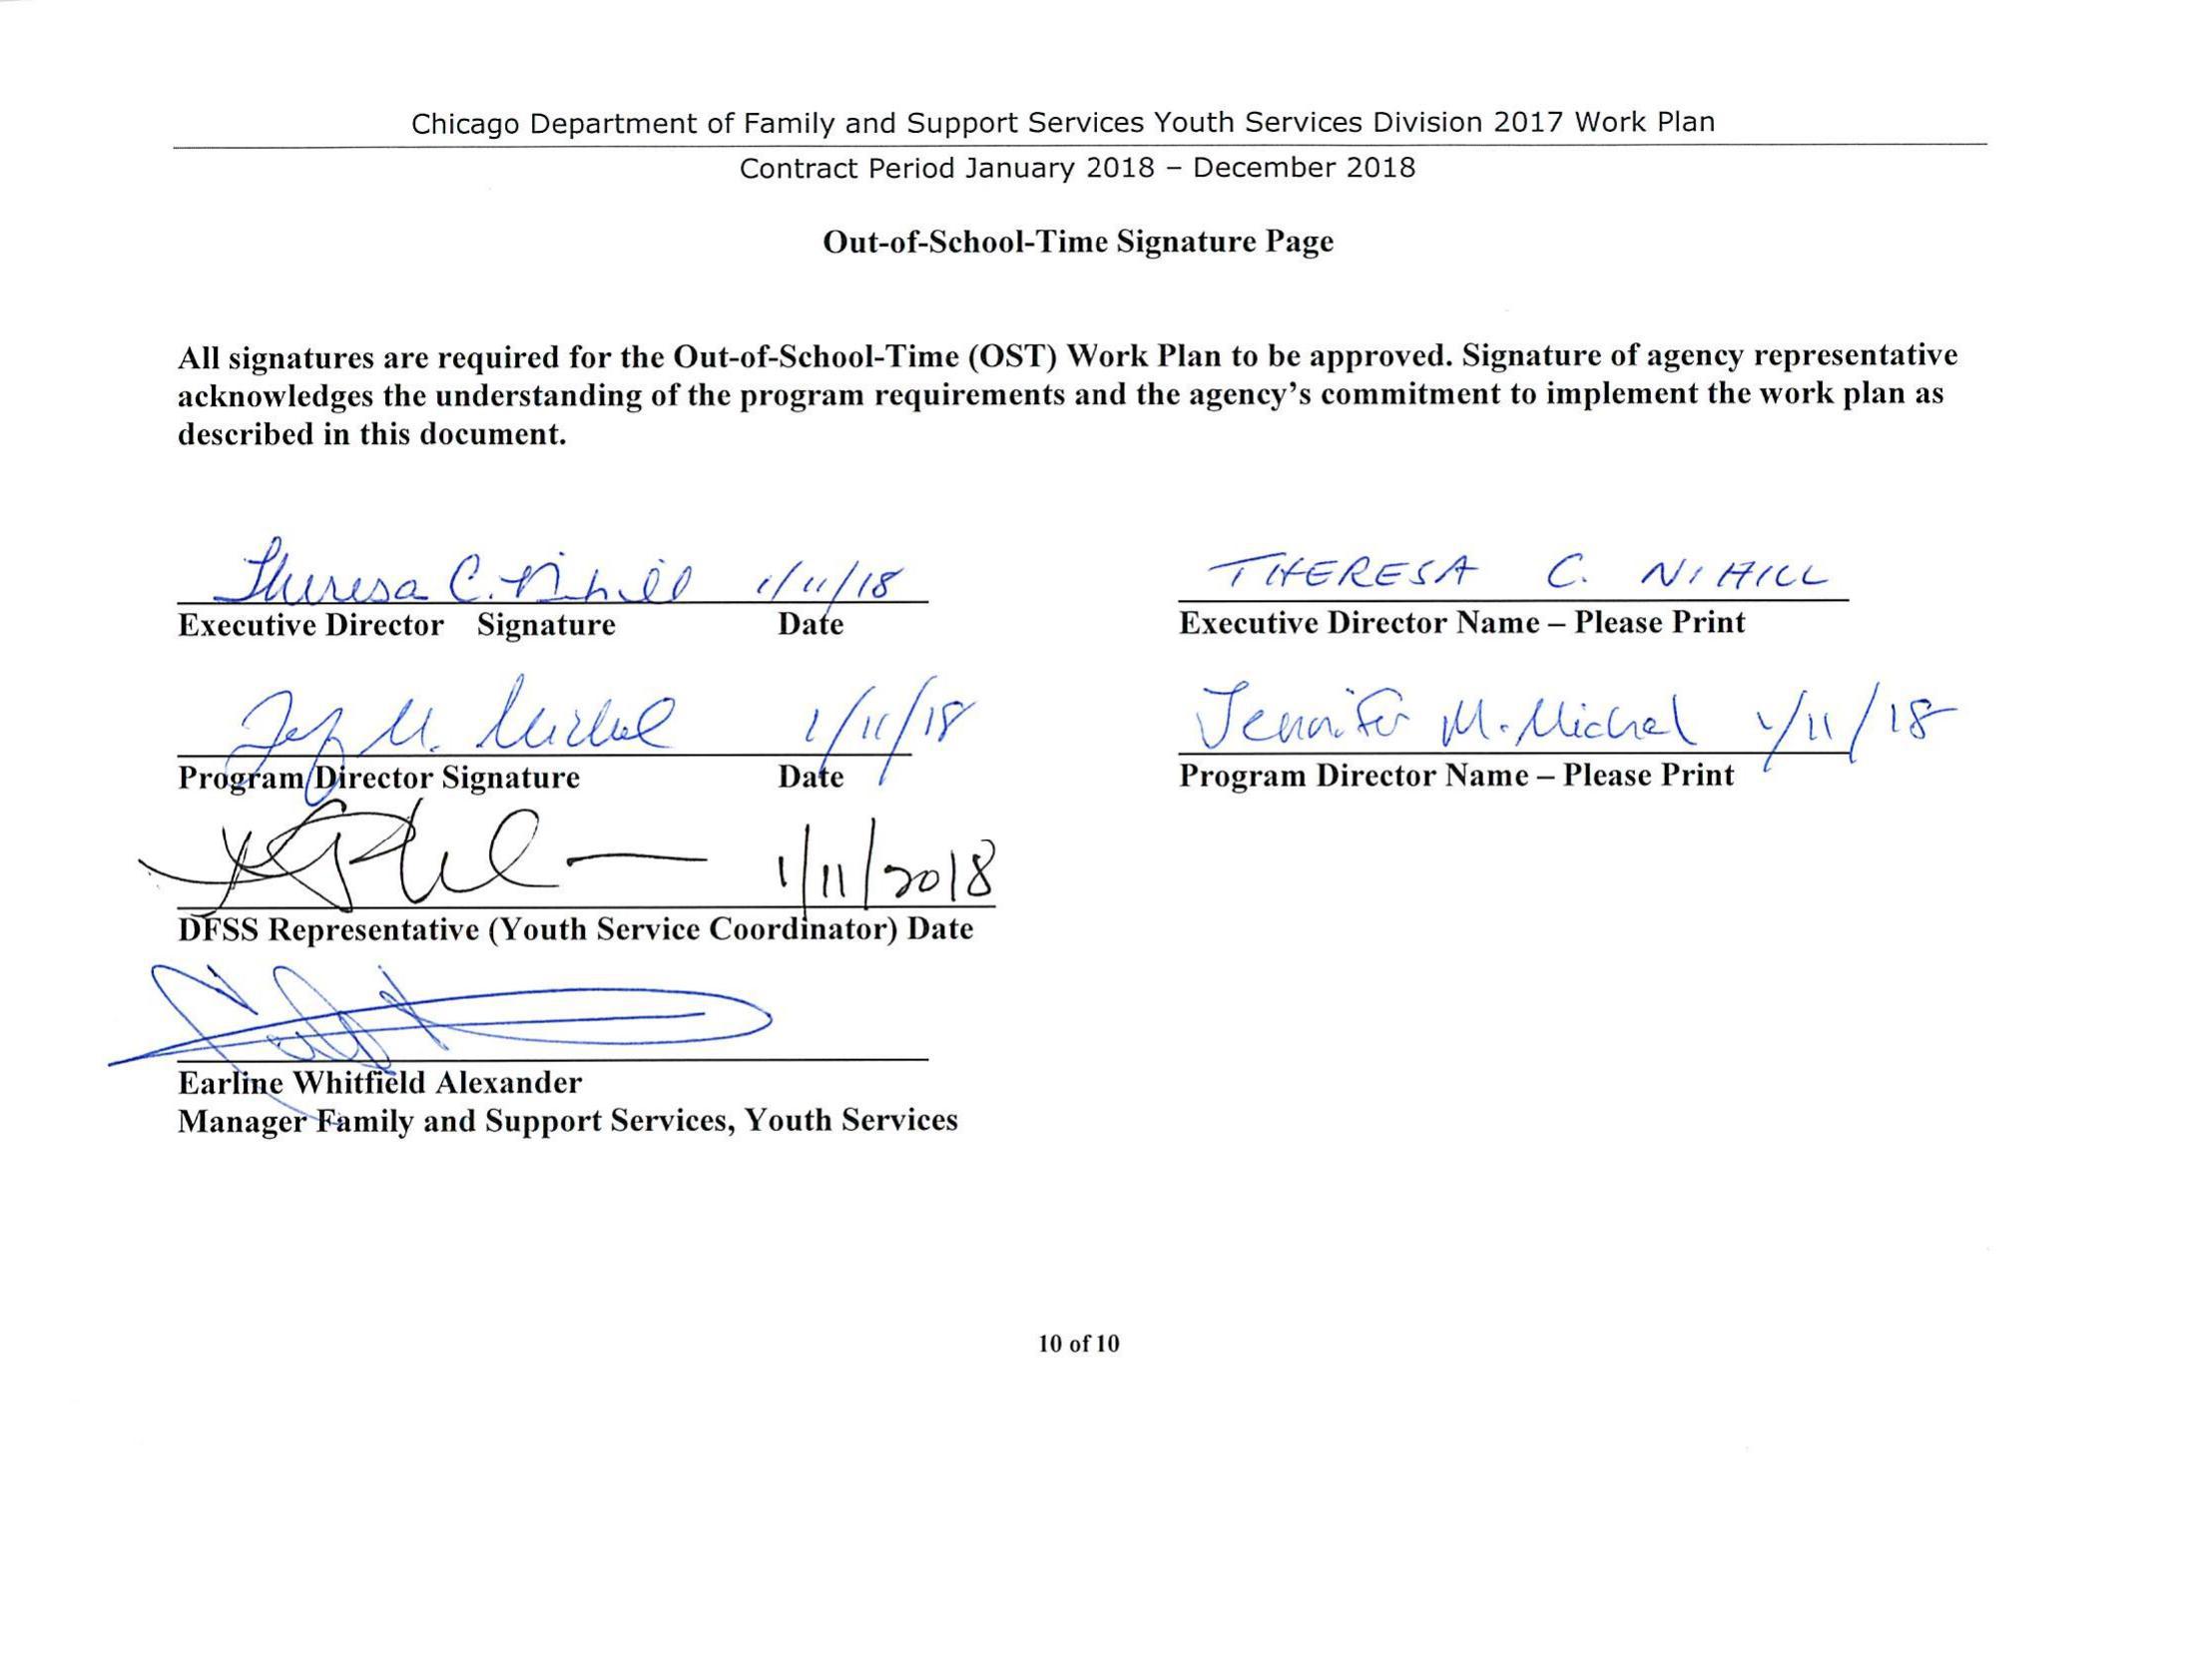 Chicago Department of Family and Support Services Youth Services Division 2017 Work Plan
Contract Period January 2018 – December 2018
Out-of-School-Time Signature Page
All signatures are required for the Out-of-School-Time (OST) Work Plan to be approved. Signature of agency representative
acknowledges the understanding of the program requirements and the agency's commitment to implement the work plan as
described in this document.
Theresa C. Nihill 1/11/18
THERESA C. NIHILL
Executive Director Signature Date
Executive Director Name – Please Print
M. Michel 1/11/18
Jennifer M. Michel 1/11/18
Program Director Signature Date
Program Director Name – Please Print
1/11/2018
DFSS Representative (Youth Service Coordinator) Date
Earline Whitfield Alexander
Manager Family and Support Services, Youth Services
10 of 10